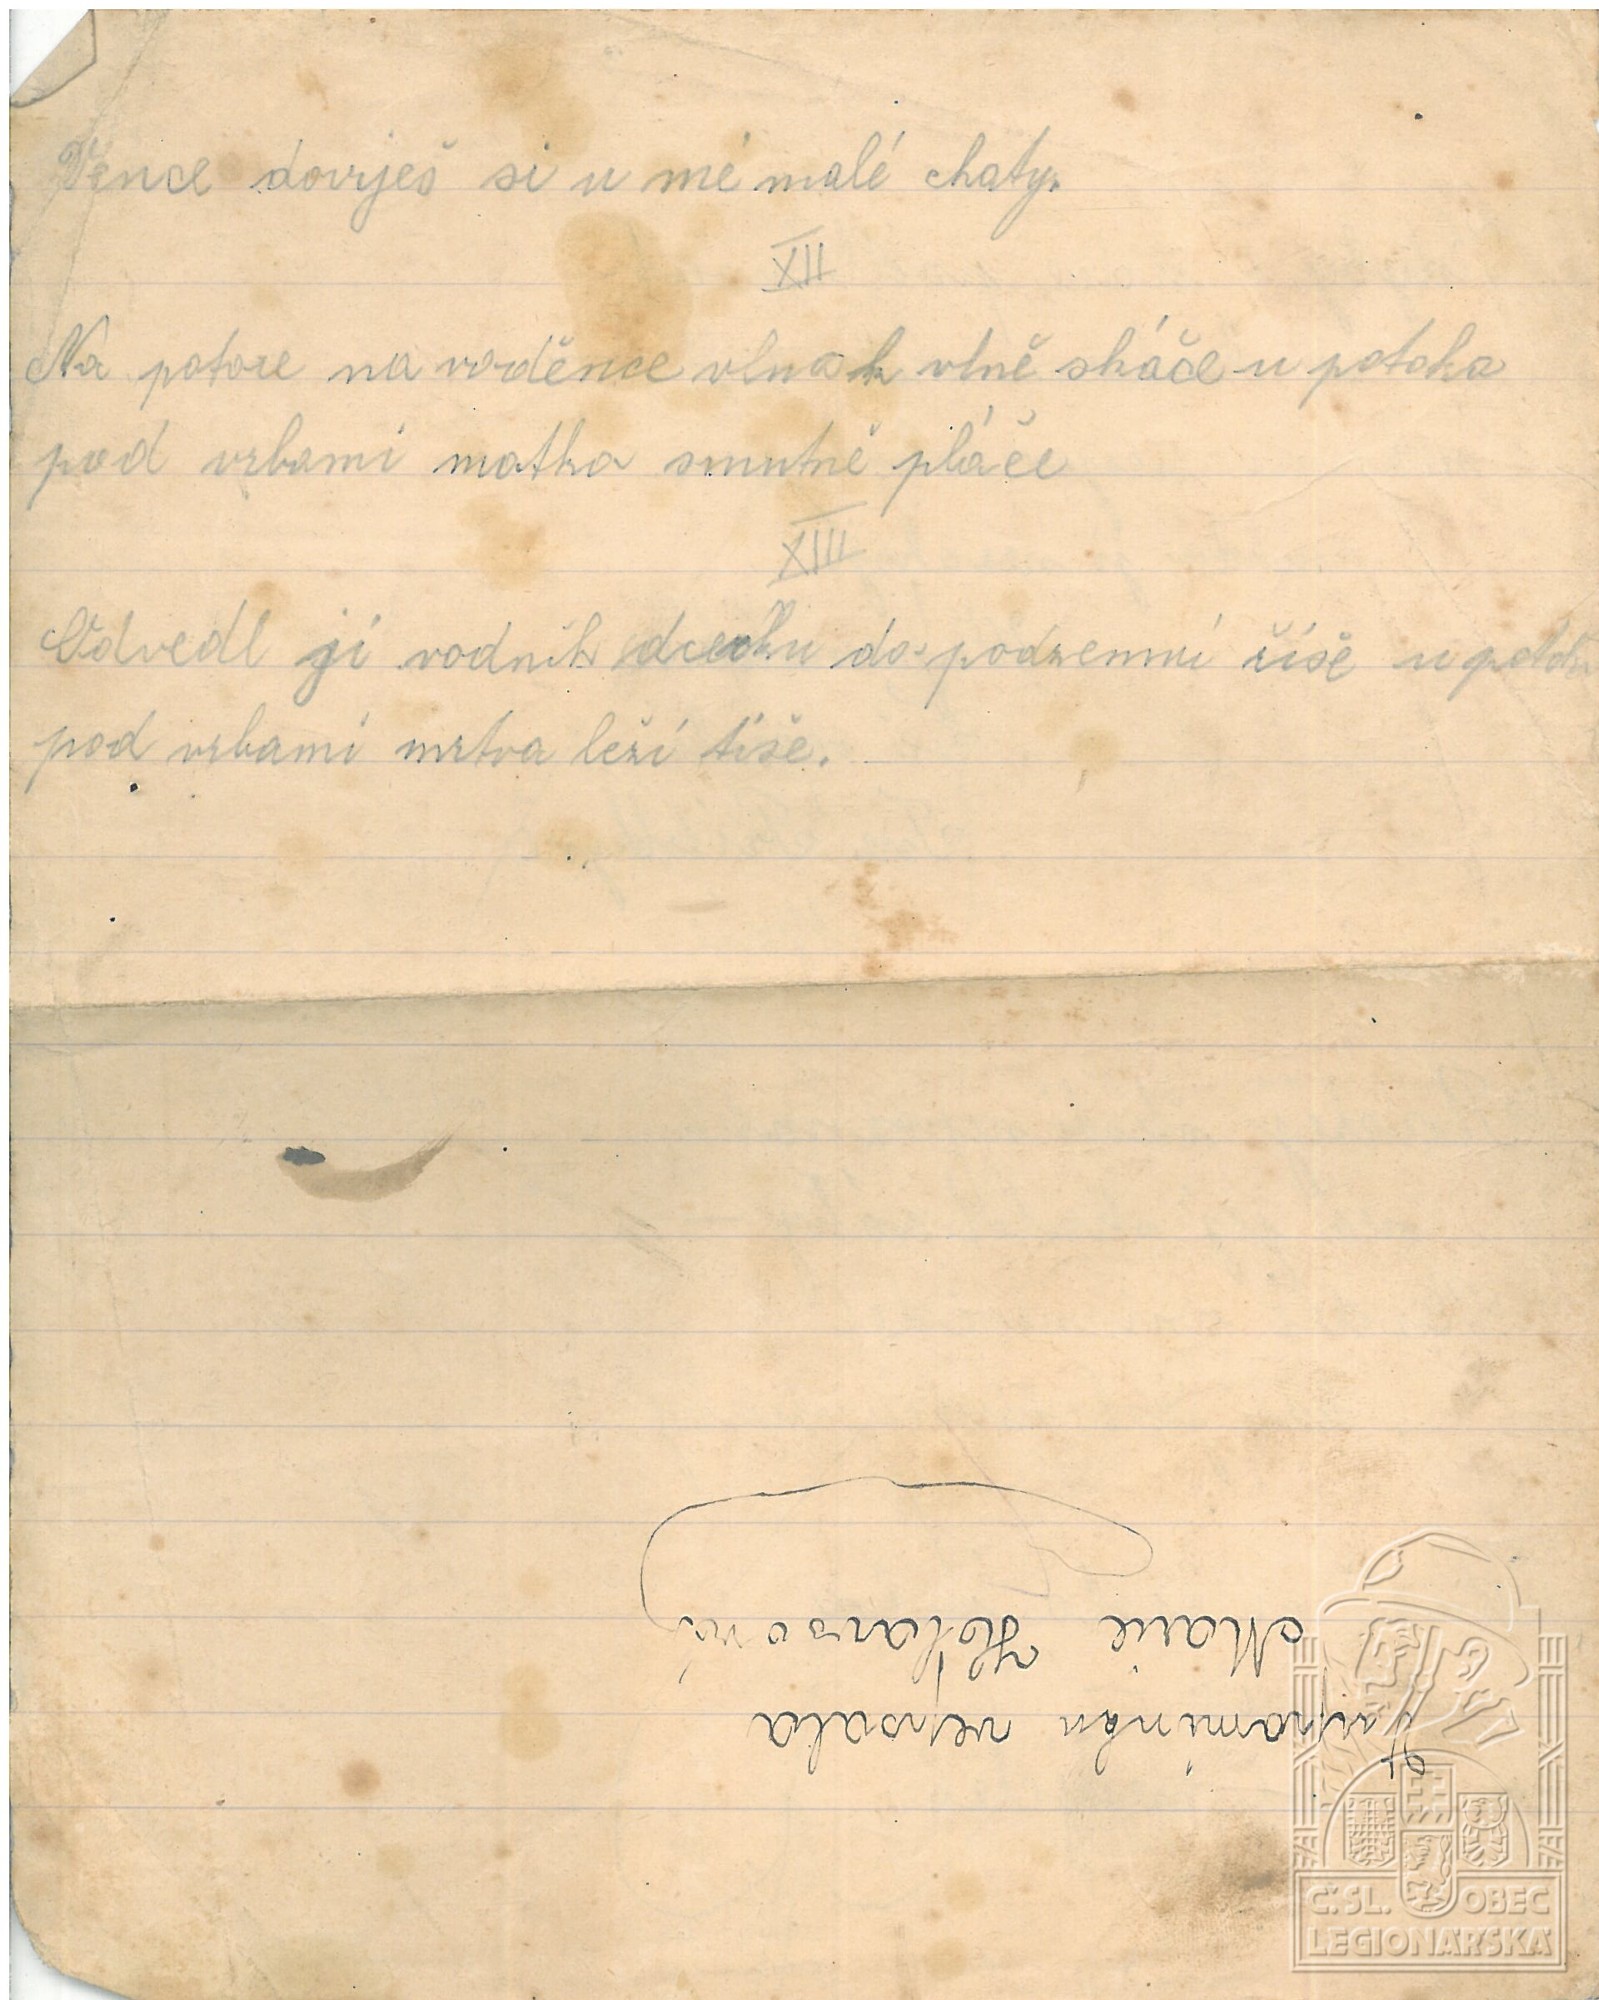 Vence dovješ si u mé malé chaty.
XII
Na potoce na voděnce vlna k vlně skáče u potoka
pod vrbami matka smutně pláče
XIII
Odvedl jí vodník dcerku do podzemní říše u potoka
pod vrbami mrtva leží tiše.
Marie
Vzpomínku vepsala
Č.SL. OBEC
LEGIONÁŘSKÁ